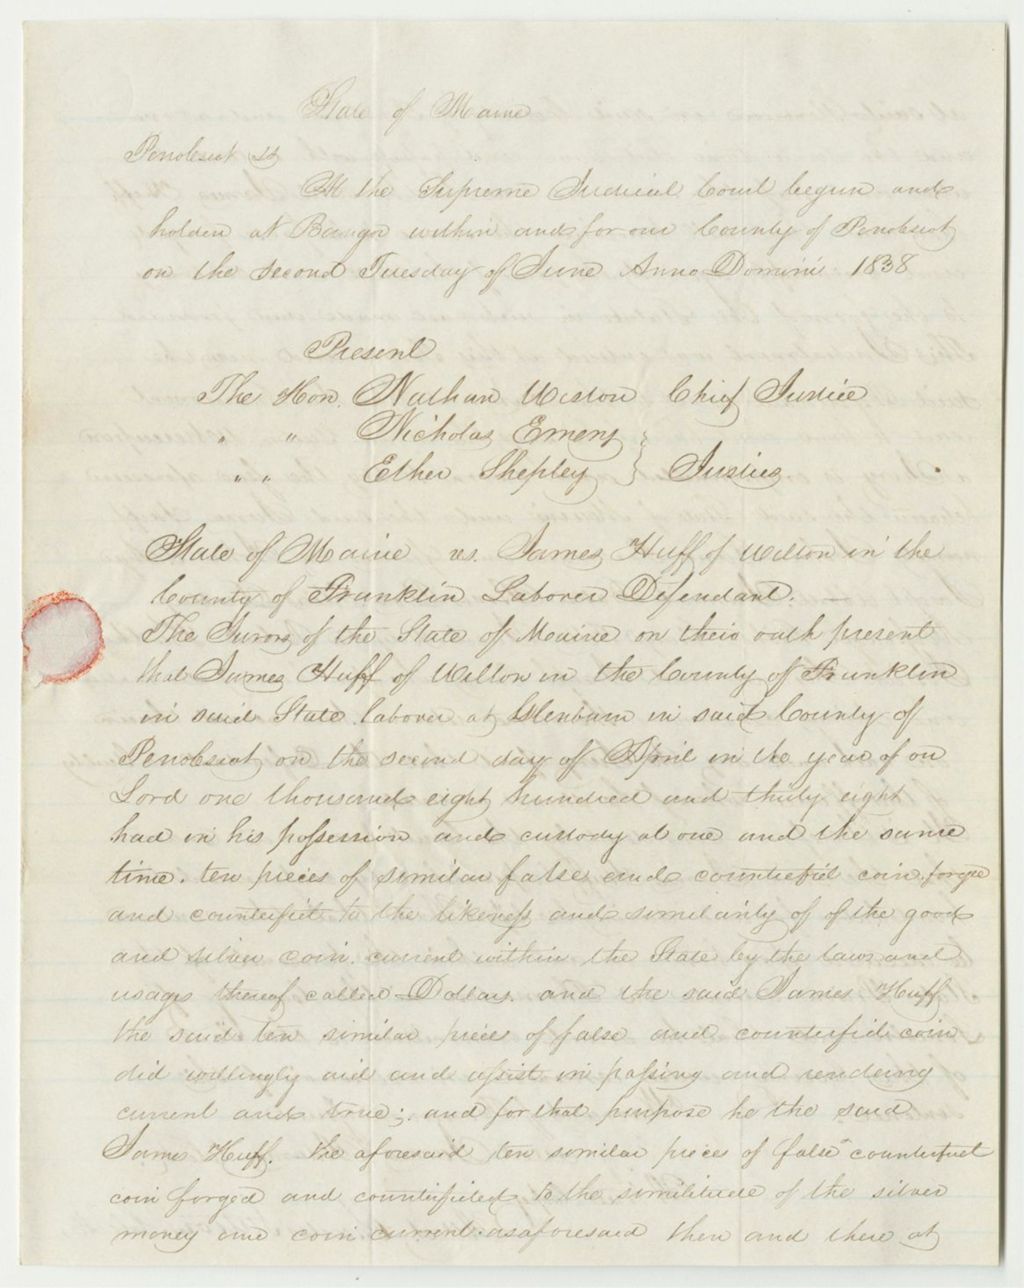 State of Maine
Penobscot ss
At the Supreme Judicial Court begun and
holden at Bangor within and for our County of Penobscot
on the second Tuesday of June Anno Domini 1838
Present
The Hon. Nathan Weston Chief Justice
" " Nicholas Emery
" " Ether Shepley } Justices
State of Maine vs. James Huff of Wilton in the
County of Franklin Laborer Defendant. —
The Jurors of the State of Maine on their oath present
that James Huff of Wilton in the County of Franklin
in said State laborer at Glenburn in said County of
Penobscot on the second day of April in the year of our
Lord one thousand eight hundred and thirty eight
had in his possession and custody at one and the same
time. ten pieces of similar false and counterfeit coin. forged
and counterfeit to the likeness and similarity of of the good
and silver coin. current within the State by the laws and
usages thereof called Dollars. and the said James Huff
the said ten similar pieces of false and counterfeit coin
did willingly aid and assist in passing and rendering
current and true; and for that purpose he the said
James Huff. the aforesaid ten similar pieces of false counterfeit
coin forged and counterfeited to the similitude of the silver
money and coin current asaforesaid then and there at